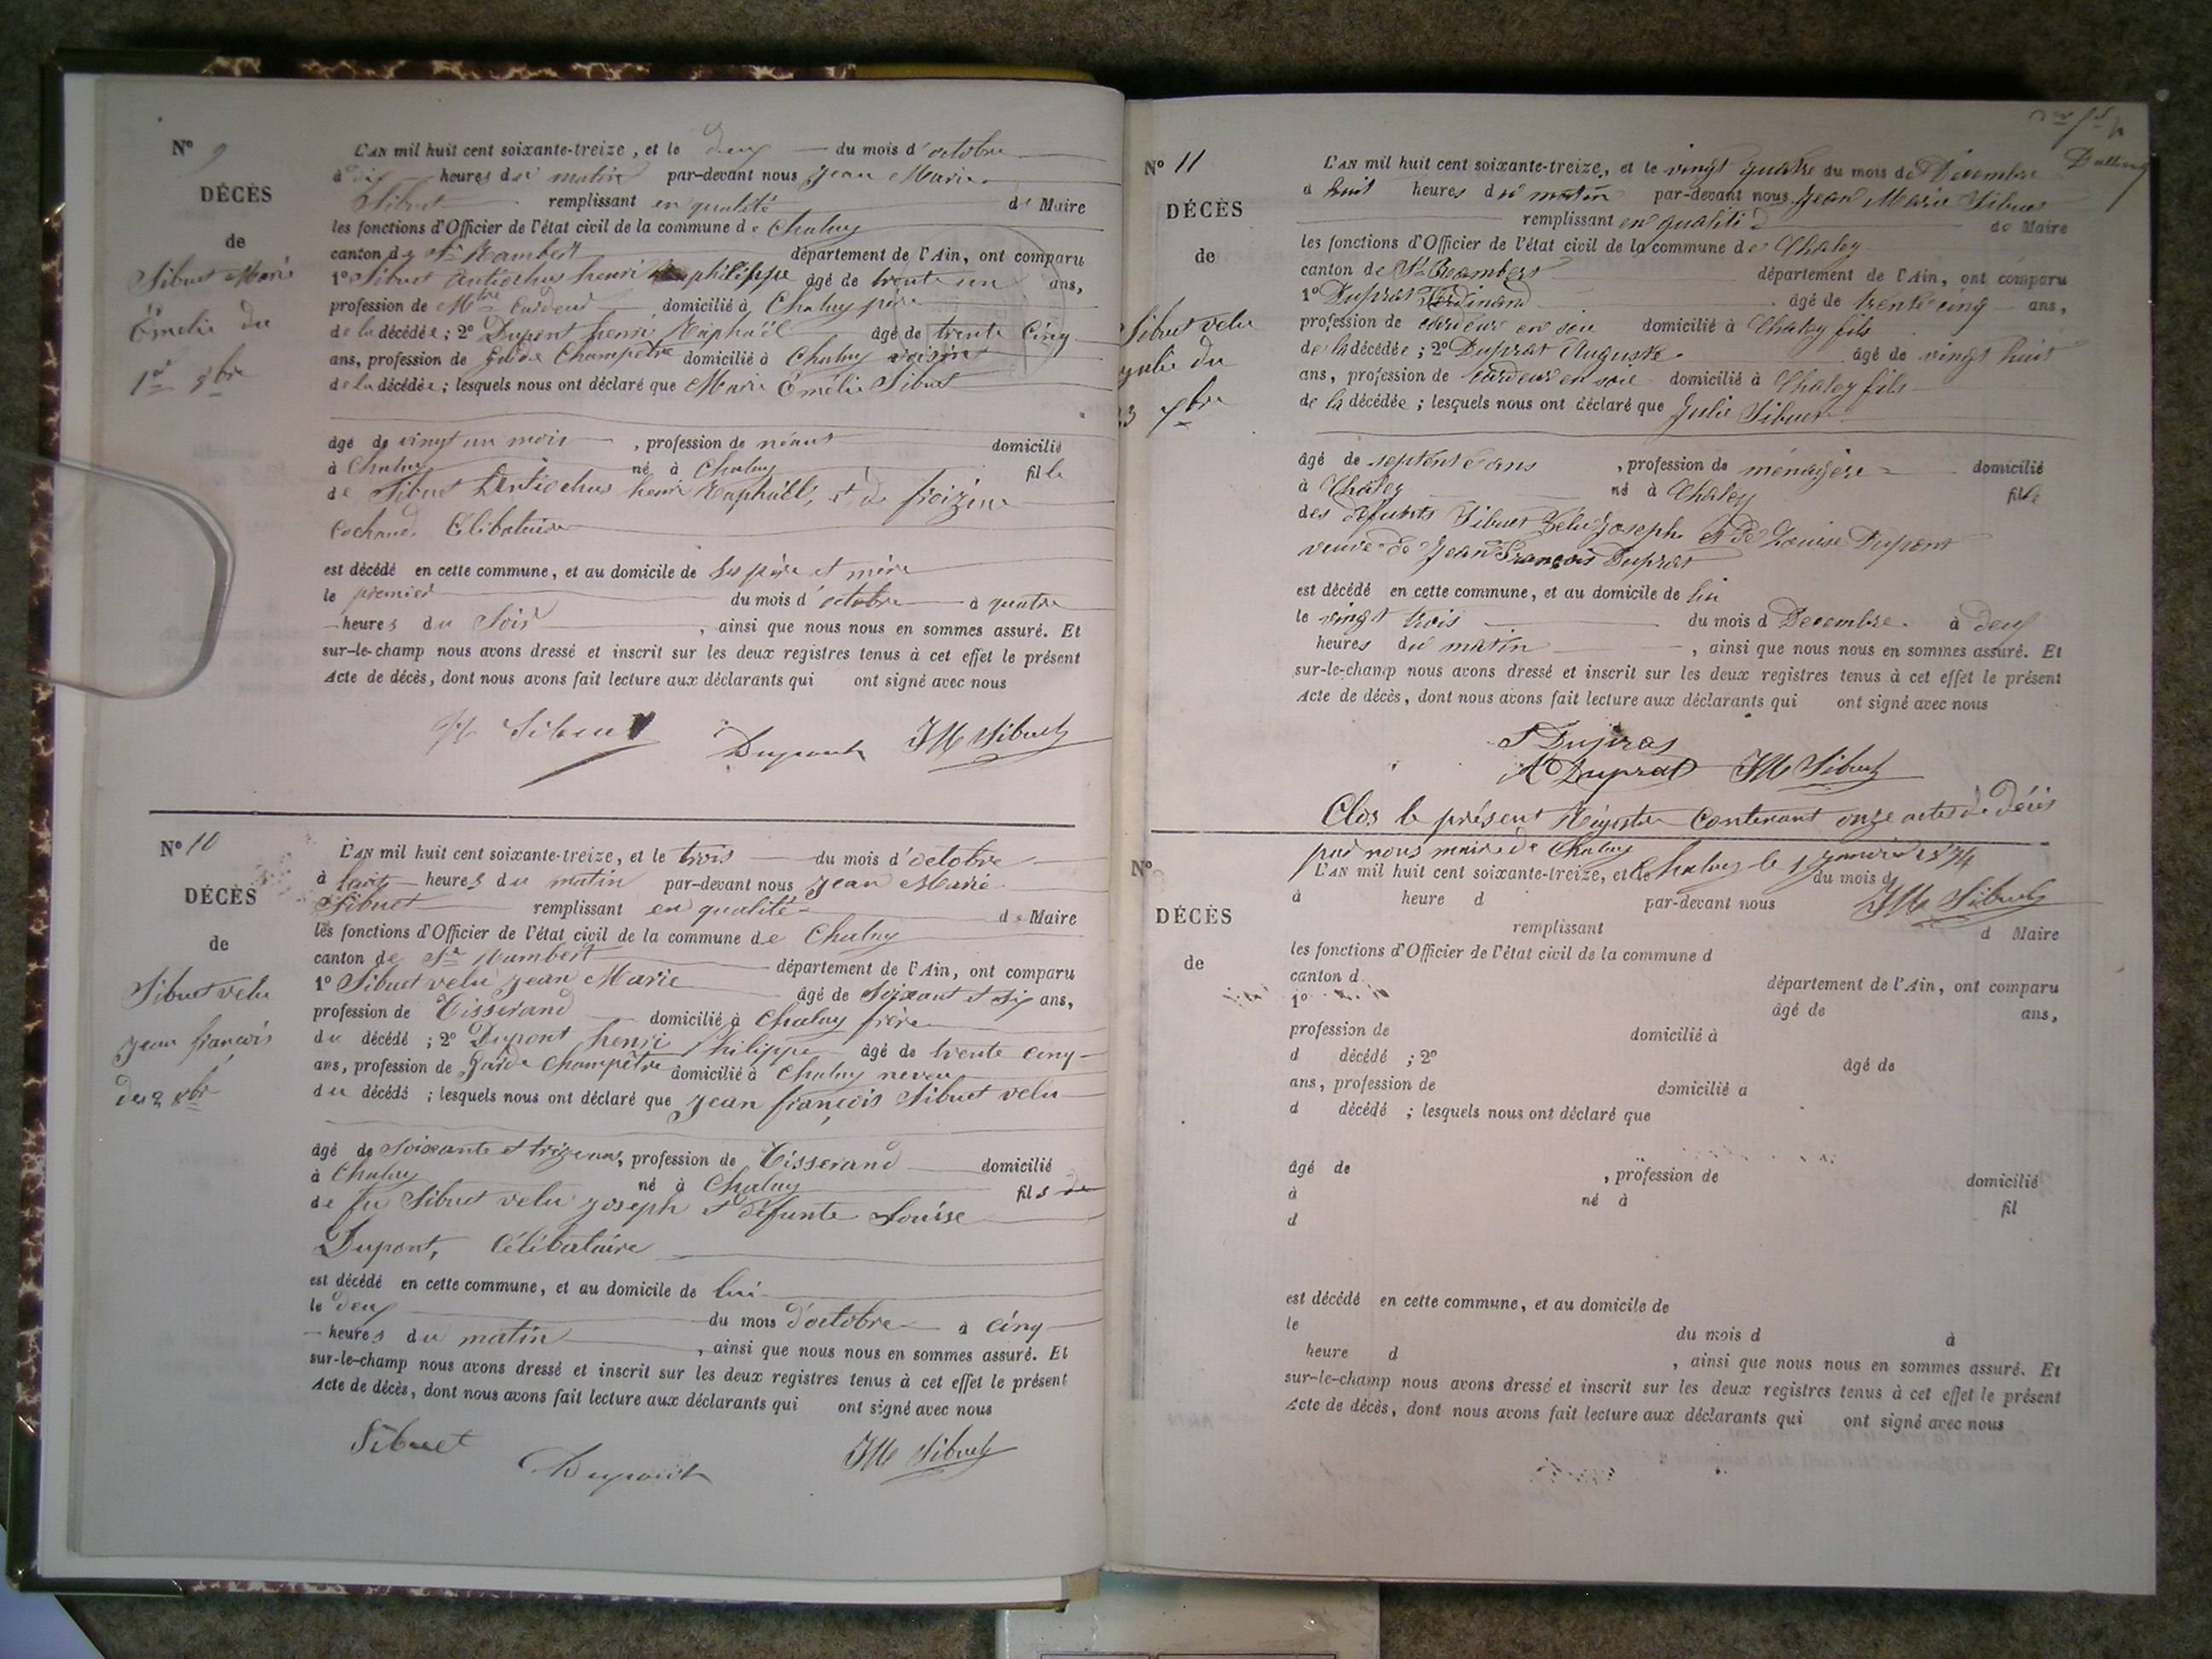 N° 9
DÉCÈS
de
Sibuet Marie
Émelie du
1er 8bre
L'AN mil huit cent soixante-treize, et le deux du mois d'octobre
à dix heures du matin par-devant nous Jean Marie
Sibuet remplissant en qualité de Maire
les fonctions d'Officier de l'état civil de la commune de Chaley
canton de St Rambert département de l'Ain, ont comparu
1° Sibuet Antiochus henri philippe âgé de trente un ans,
profession de Mtre Cardeur domicilié à Chaley père
de la décédée ; 2° Dupont henri Raphaël âgé de trente cinq
ans, profession de Garde Champêtre domicilié à Chaley voisin
de la décédée ; lesquels nous ont déclaré que Marie Émélie Sibuet
âgé de vingt un mois, profession de néant domicilié
à Chaley né à Chaley fille
de Sibuet Antiochus henri Raphaël, et de froizine
Cochand Célibataire
est décédé en cette commune, et au domicile de ses père et mère
le premier du mois d'octobre à quatre
heures du Soir, ainsi que nous nous en sommes assuré. Et
sur-le-champ nous avons dressé et inscrit sur les deux registres tenus à cet effet le présent
Acte de décès, dont nous avons fait lecture aux déclarants qui ont signé avec nous
Sibuet Dupont JM Sibuet
N° 10
DÉCÈS
de
Sibuet velu
Jean françois
du 2 8bre
L'AN mil huit cent soixante-treize, et le trois du mois d'octobre
à huit heures du matin par-devant nous Jean Marie
Sibuet remplissant en qualité de Maire
les fonctions d'Officier de l'état civil de la commune de Chaley
canton de St Rambert département de l'Ain, ont comparu
1° Sibuet velu Jean Marie âgé de Soixant et six ans,
profession de Tisserand domicilié à Chaley frère
du décédé ; 2° Dupont henri Philippe âgé de trente cinq
ans, profession de Garde Champêtre domicilié à Chaley neveu
du décédé ; lesquels nous ont déclaré que Jean françois Sibuet velu
âgé de soixante et treize ans, profession de Tisserand domicilié
à Chaley né à Chaley fils de
de feu Sibuet velu Joseph et défunte Louise
Dupont, Célibataire
est décédé en cette commune, et au domicile de lui
le deux du mois d'octobre à cinq
heures du matin, ainsi que nous nous en sommes assuré. Et
sur-le-champ nous avons dressé et inscrit sur les deux registres tenus à cet effet le présent
Acte de décès, dont nous avons fait lecture aux déclarants qui ont signé avec nous
Sibuet Dupont JM Sibuet
N° 11
DÉCÈS
de
Sibuet velu
Julie du
23 xbre
L'AN mil huit cent soixante-treize, et le vingt quatre du mois de Decembre
à huit heures du matin par-devant nous Jean Marie Sibuet
remplissant en qualité de Maire
les fonctions d'Officier de l'état civil de la commune de Chaley
canton de St Rambert département de l'Ain, ont comparu
1° Duprat Ferdinand âgé de trente cinq ans,
profession de cardeur en soie domicilié à Chaley fils
de la décédée ; 2° Duprat Auguste âgé de vingt huit
ans, profession de cardeur en soie domicilié à Chaley fils
de la décédée ; lesquels nous ont déclaré que Julie Sibuet
âgé de septente ans, profession de ménagère domicilié
à Chaley né à Chaley fille
des défunts Sibuet Velu Joseph et de Louise Dupont
veuve de Jean François Duprat
est décédé en cette commune, et au domicile de lui
le vingt trois du mois d Decembre à deux
heures du matin, ainsi que nous nous en sommes assuré. Et
sur-le-champ nous avons dressé et inscrit sur les deux registres tenus à cet effet le présent
Acte de décès, dont nous avons fait lecture aux déclarants qui ont signé avec nous
Duprat
A Duprat JM Sibuet
Clos le présent Régistre Contenant onze actes de décès
par nous maire de Chaley
Chaley le 1 janvier 1874
JM Sibuet
N°
DÉCÈS
de
L'AN mil huit cent soixante-treize, et le du mois d
à heure d par-devant nous
remplissant d Maire
les fonctions d'Officier de l'état civil de la commune d
canton d département de l'Ain, ont comparu
1° âgé de ans,
profession de domicilié à
d décédé ; 2° âgé de
ans, profession de domicilié a
d décédé ; lesquels nous ont déclaré que
âgé de , profession de domicilié
à né à fil
d
est décédé en cette commune, et au domicile de
le du mois d à
heure d , ainsi que nous nous en sommes assuré. Et
sur-le-champ nous avons dressé et inscrit sur les deux registres tenus à cet effet le présent
Acte de décès, dont nous avons fait lecture aux déclarants qui ont signé avec nous